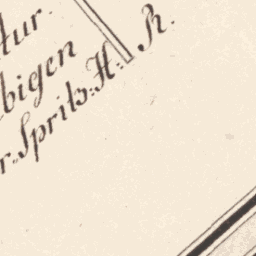 tur.
bigen
r. Sprits: H: R.